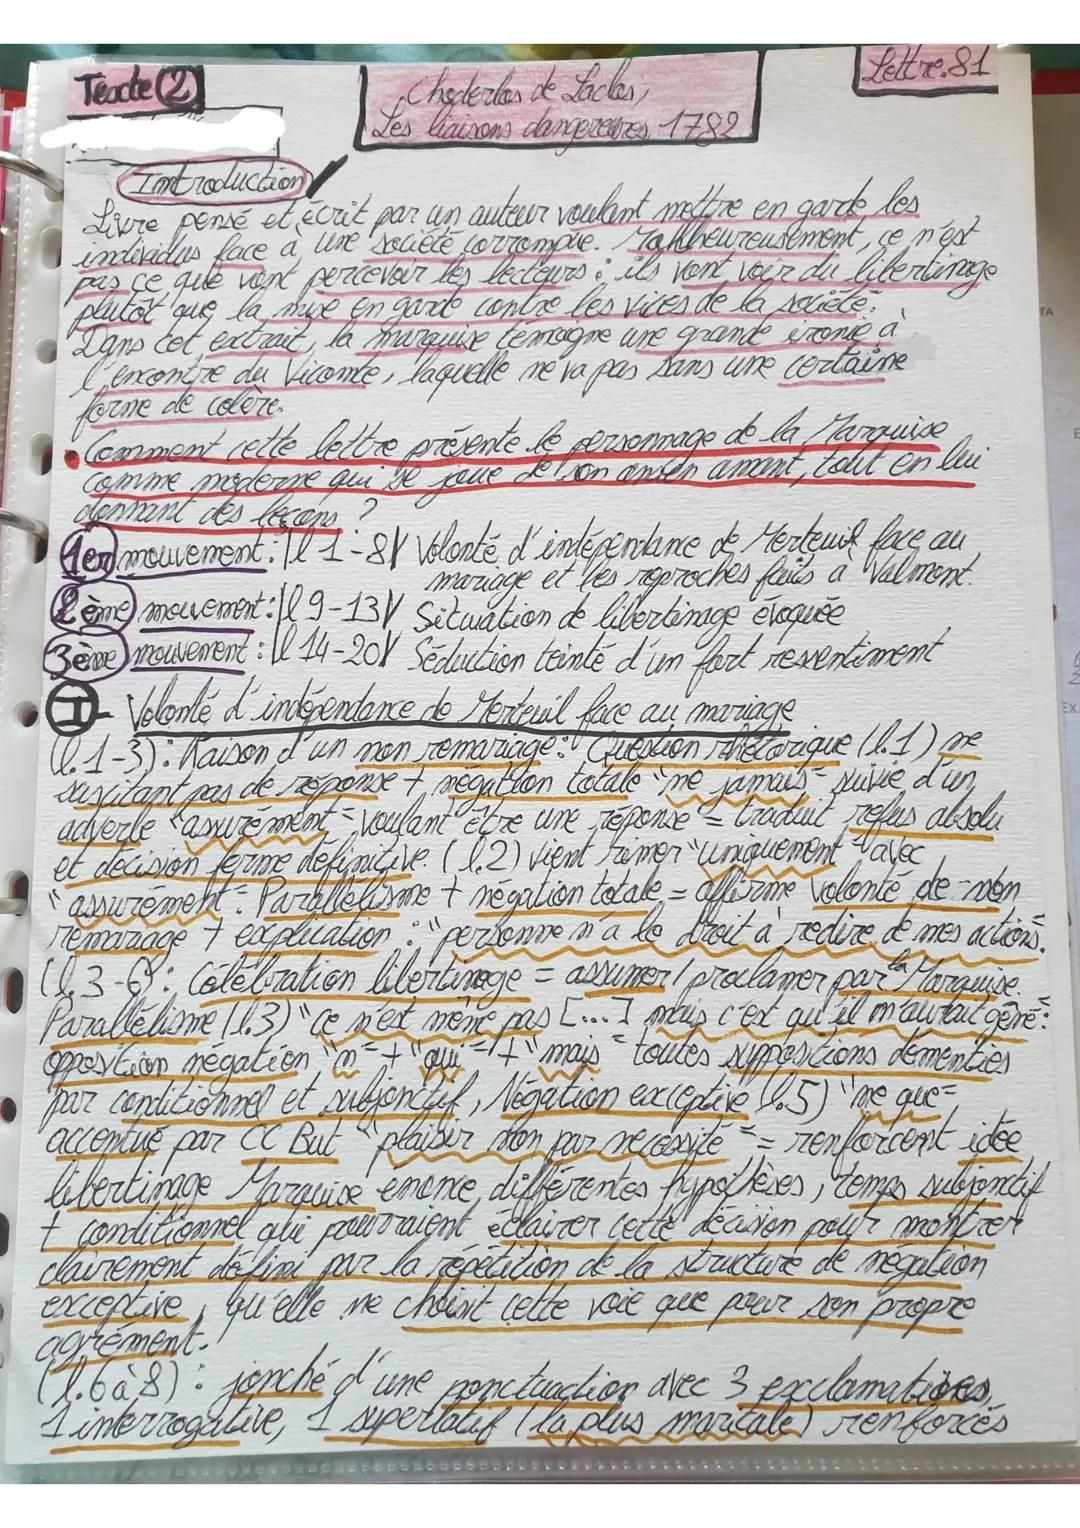 Texte 2
Choderlos de Laclos,
Les liaisons dangereuses, 1782
Lettre.81
Introduction
Livre pensé et écrit par un auteur voulant mettre en garde les
individus face à une société corrompue. Malheureusement, ce n'est
pas ce que vont percevoir les lecteurs : ils vont voir du libertinage
plutôt que la mise en garde contre les vices de la société.
Dans cet extrait, la marquise témoigne une grande ironie à
l'encontre du Vicomte, laquelle ne va pas sans une certaine
forme de colère.
• Comment cette lettre présente le personnage de la Marquise
comme moderne qui se joue de son ancien amant, tout en lui
donnant des leçons ?
1er mouvement : l 1-8 Volonté d'indépendance de Merteuil face au
mariage et les reproches faits à Valmont.
2ème mouvement : l 9-13 Situation de libertinage évoquée
3ème mouvement : l 14-20 Séduction teinté d'un fort ressentiment
I- Volonté d'indépendance de Merteuil face au mariage
(l.1-3) : Raison d'un non remariage : Question rhétorique (l.1) ne
suscitant pas de réponse + négation totale "ne jamais" suivie d'un
adverbe "assurément" voulant être une réponse = traduit refus absolu
et décision ferme définitive. (l.2) vient rimer "uniquement" avec
"assurément". Parallélisme + négation totale = affirme volonté de non
remariage + explication : "personne n'a le droit à redire de mes actions".
(l.3-6) : Célébration libertinage = assumer/proclamer par la Marquise.
Parallélisme (l.3) "ce n'est même pas [...] mais c'est qu'il m'aurait gêné" :
opposition négation "n" + "qui" + "mais" toutes suppositions démenties
par conditionnel et subjonctif, Négation exceptive (l.5) "ne que"
accentué par CC But "plaisir non par nécessité" = renforcent idée
libertinage Marquise énonce différentes hypothèses, temps subjonctif
+ conditionnel qui pourraient éclairer cette décision pour montrer
clairement défini par la répétition de la structure de négation
exceptive, qu'elle ne choisit cette voie que pour son propre
agrément.
(l.6 à 8) : jonché d'une ponctuation avec 3 exclamations,
1 interrogative, 1 superlatif (la plus maritale) renforcés